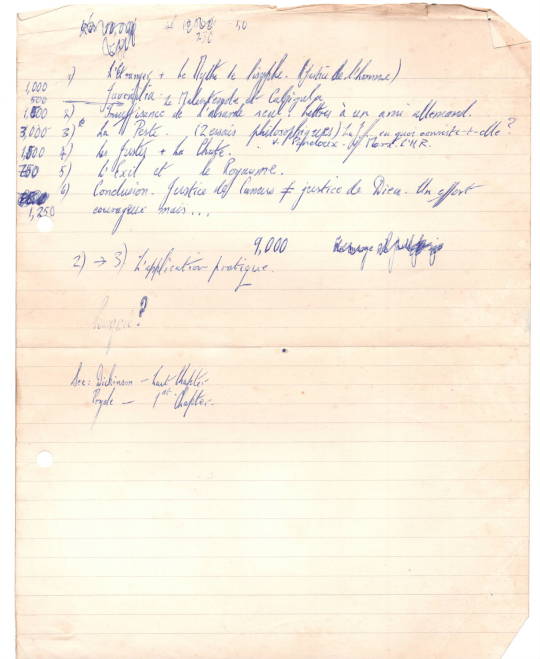 50
250
1,000 1) L'Étranger + Le Mythe de Sisyphe. (Justice de l'homme)
500 Juvenilia: Le Malentendu et Caligula
1,500 2) Insuffisance de l'absurde seul: Lettres à un ami allemand.
3,000 3) La Peste. (2 essais philosophiques) La J. en quoi consiste-t-elle?
v. Paneloux - L'H.R.
1,500 4) Les Justes + La Chute.
750 5) L'Exil et le Royaume.
6) Conclusion. Justice de Camus ≠ justice de Dieu. Un effort
1,250 courageux mais...
9,000
2) → 3) L'application pratique.
?
See: Dickinson - Last Chapter
- 1st Chapter.